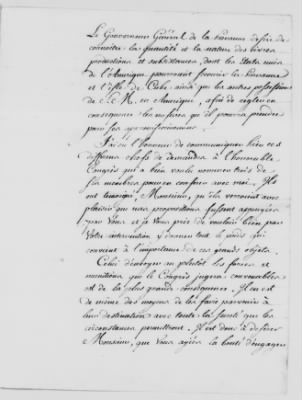 Le Gouverneur Général de la havane desire de
connoitre la quantité et la nature des vivres
productions et subsistances, dont les Etats unis
de l'Amerique pourroient fournir la havane
et l'Isle de Cuba ainsi que les autres possessions
de S. M. en Amerique, afin de regler en
consequence les mesures qu'il pourra prendre
pour ses approvisionnemens.
J'ai eu l'honneur de communiquer hier ces
differens chefs de demandes à l'honorable
Congrès qui a bien voulu nommer trois de
ses membres pour en conferer avec moi. Ils
ont temoigné, Monsieur, qu'ils verroient avec
plaisir que mes propositions fussent appuyées
par Vous et je Vous prie de vouloir bien par
Votre intervention y donner tout le poids qui
convient à l'importance de ces grands objets.
Celui d'envoyer au plutôt les farines et
munitions que le Congrès jugera convenables
est de la plus grande consequence. Il en est
de même des moyens de les faire parvenir à
leur destination avec toute la sureté que les
circonstances permettront. Il est donc à desirer
Monsieur, que Vous ayiez la bonté d'engager